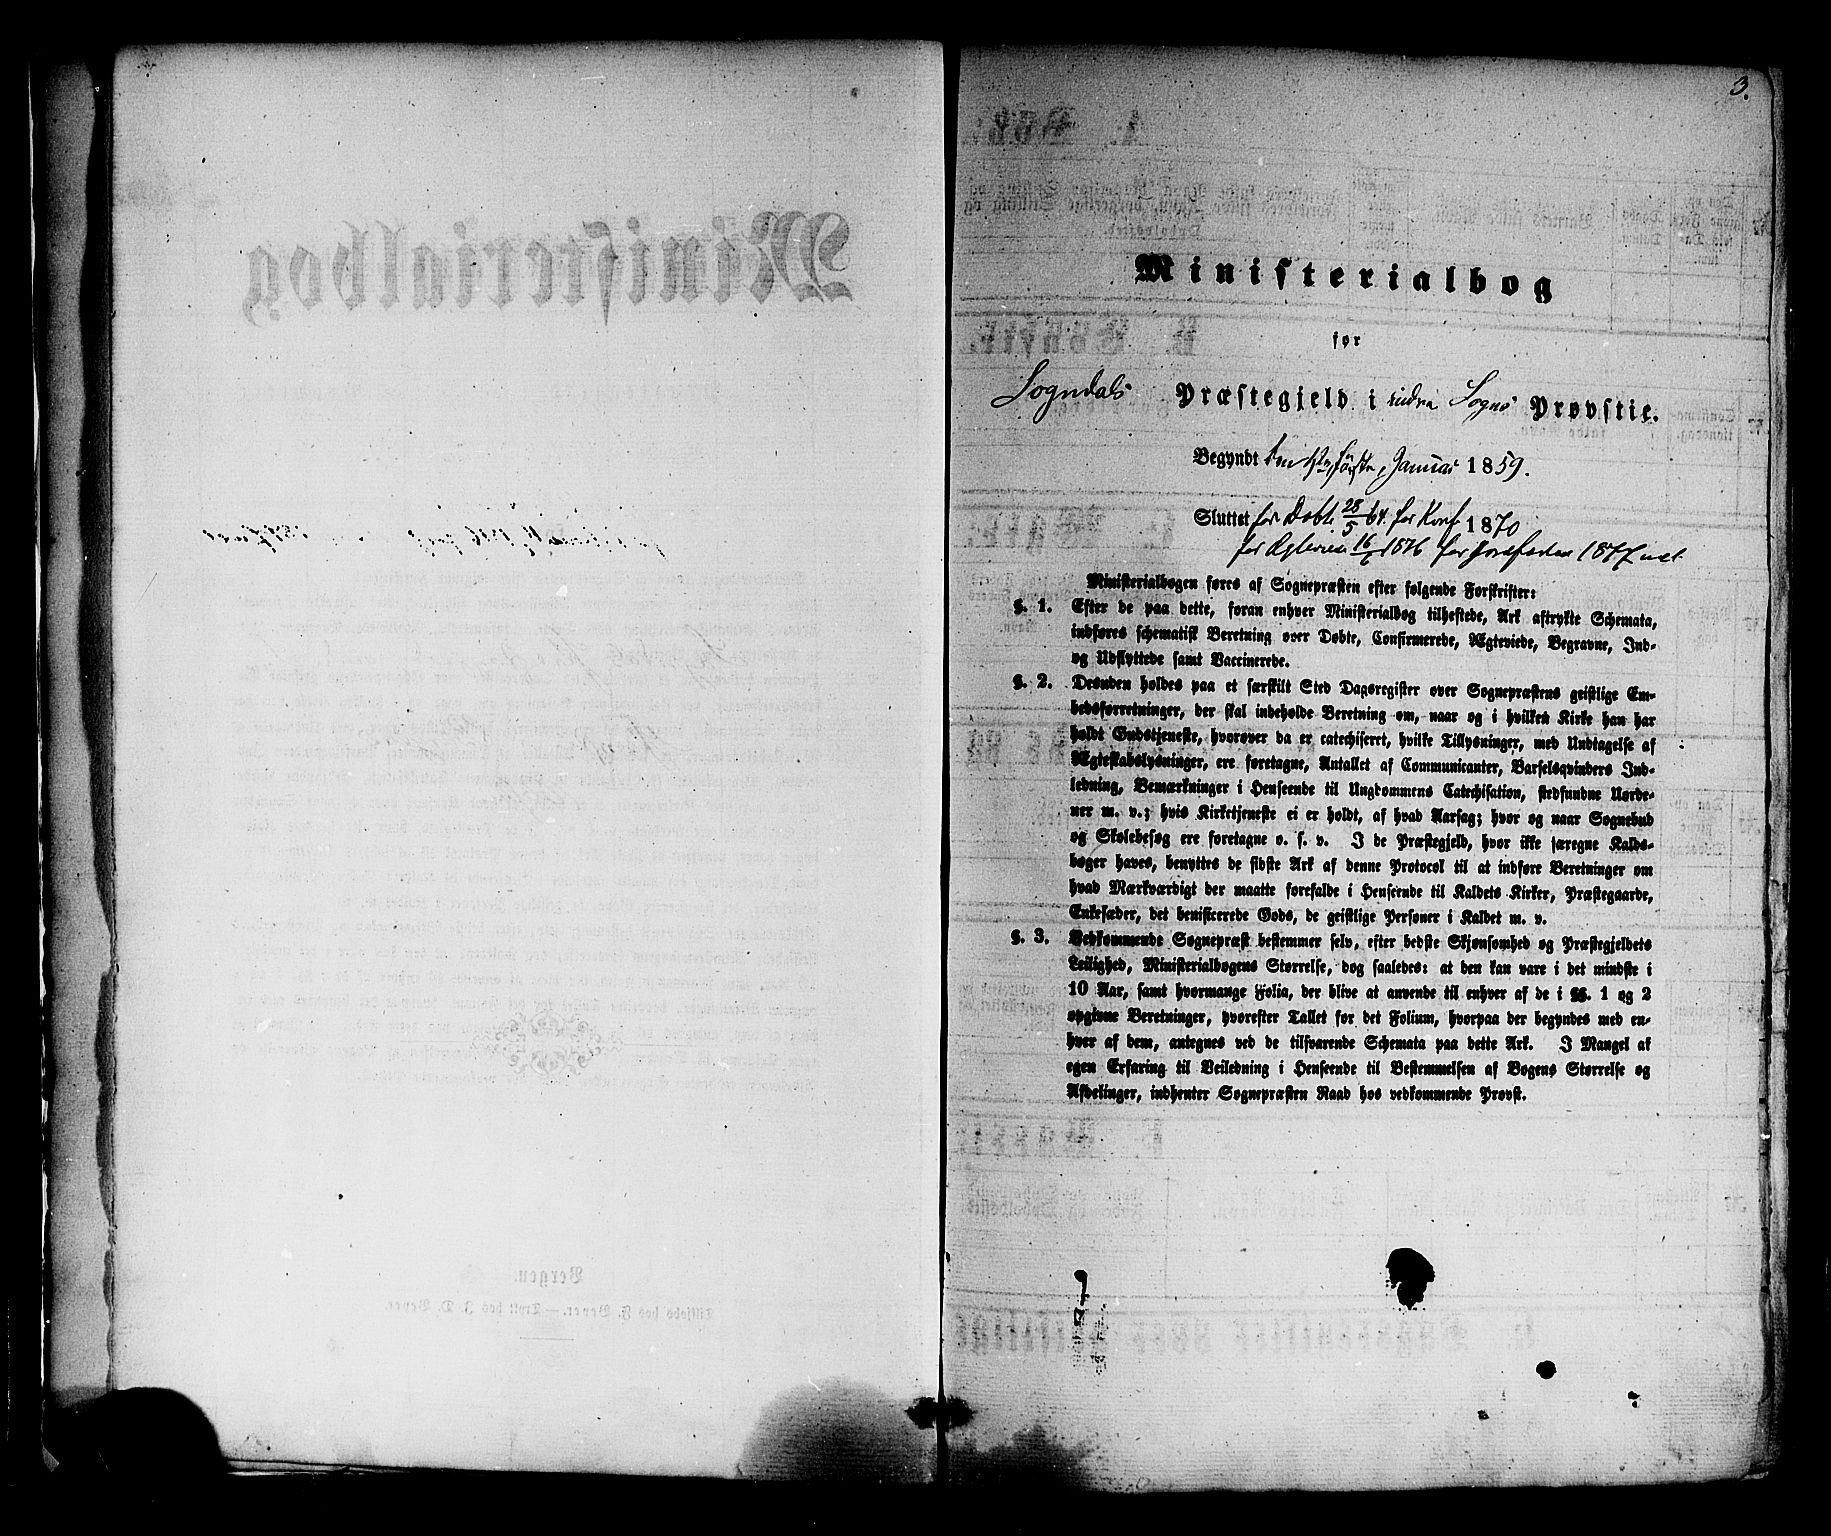 3.
Ministerialbog
for
Sogndals Præstegjeld i indre Sogns Provstie.
Begyndt den 1ste, første, Januar 1859.
Sluttet for Døbte 28/5 64. for Konf 1870
for Ægteviede 16/ 1876 for 1877 incl.
Ministerialbogen føres af Sognepræsten efter følgende Forskrifter:
§. 1. Efter de paa dette, foran enhver Ministerialbog tilheftede, Ark aftrykte Schemata,
indføres schematisk Beretning over Døbte, Confirmerede, Ægteviede, Begravne, Ind-
og Udflyttede samt Vaccinerede.
§. 2. Desuden holdes paa et særskilt Sted Dagsregister over Sognepræstens geistlige Em-
bedsforretninger, der skal indeholde Beretning om, naar og i hvilken Kirke han har
holdt Gudstjeneste, hvorover da er catechiseret, hvilke Tillysninger, med Undtagelse af
Ægteskabslysninger, ere foretagne, Antallet af Communicanter, Barselsqvinders Ind-
ledning, Bemærkninger i Henseende til Ungdommens Catechisation, stedfundne Uorde-
ner m. v.; hvis Kirketjeneste ei er holdt, af hvad Aarsag; hvor og naar Sognebud
og Skolebesøg ere foretagne o. s. v. I de Præstegjeld, hvor ikke særegne Kalds-
bøger haves, benyttes de sidste Ark af denne Protocol til at indføre Beretninger om
hvad Mærkværdigt der maatte forefalde i Henseende til Kaldets Kirker, Præstegaarde,
Enkesæder, det beneficerede Gods, de geistlige Personer i Kaldet m. v.
§. 3. Vedkommende Sognepræst bestemmer selv, efter bedste Skjønsomhed og Præstegjeldets
Leilighed, Ministerialbogens Størrelse, dog saaledes: at den kan vare i det mindste i
10 Aar, samt hvormange Folia, der blive at anvende til enhver af de i §§. 1 og 2
opgivne Beretninger, hvorefter Tallet for det Folium, hvorpaa der begyndes med en-
hver af dem, antegnes ved de tilsvarende Schemata paa dette Ark. I Mangel af
egen Erfaring til Veiledning i Henseende til Bestemmelsen af Bogens Størrelse og
Afdelinger, indhenter Sognepræsten Raad hos vedkommende Provst.